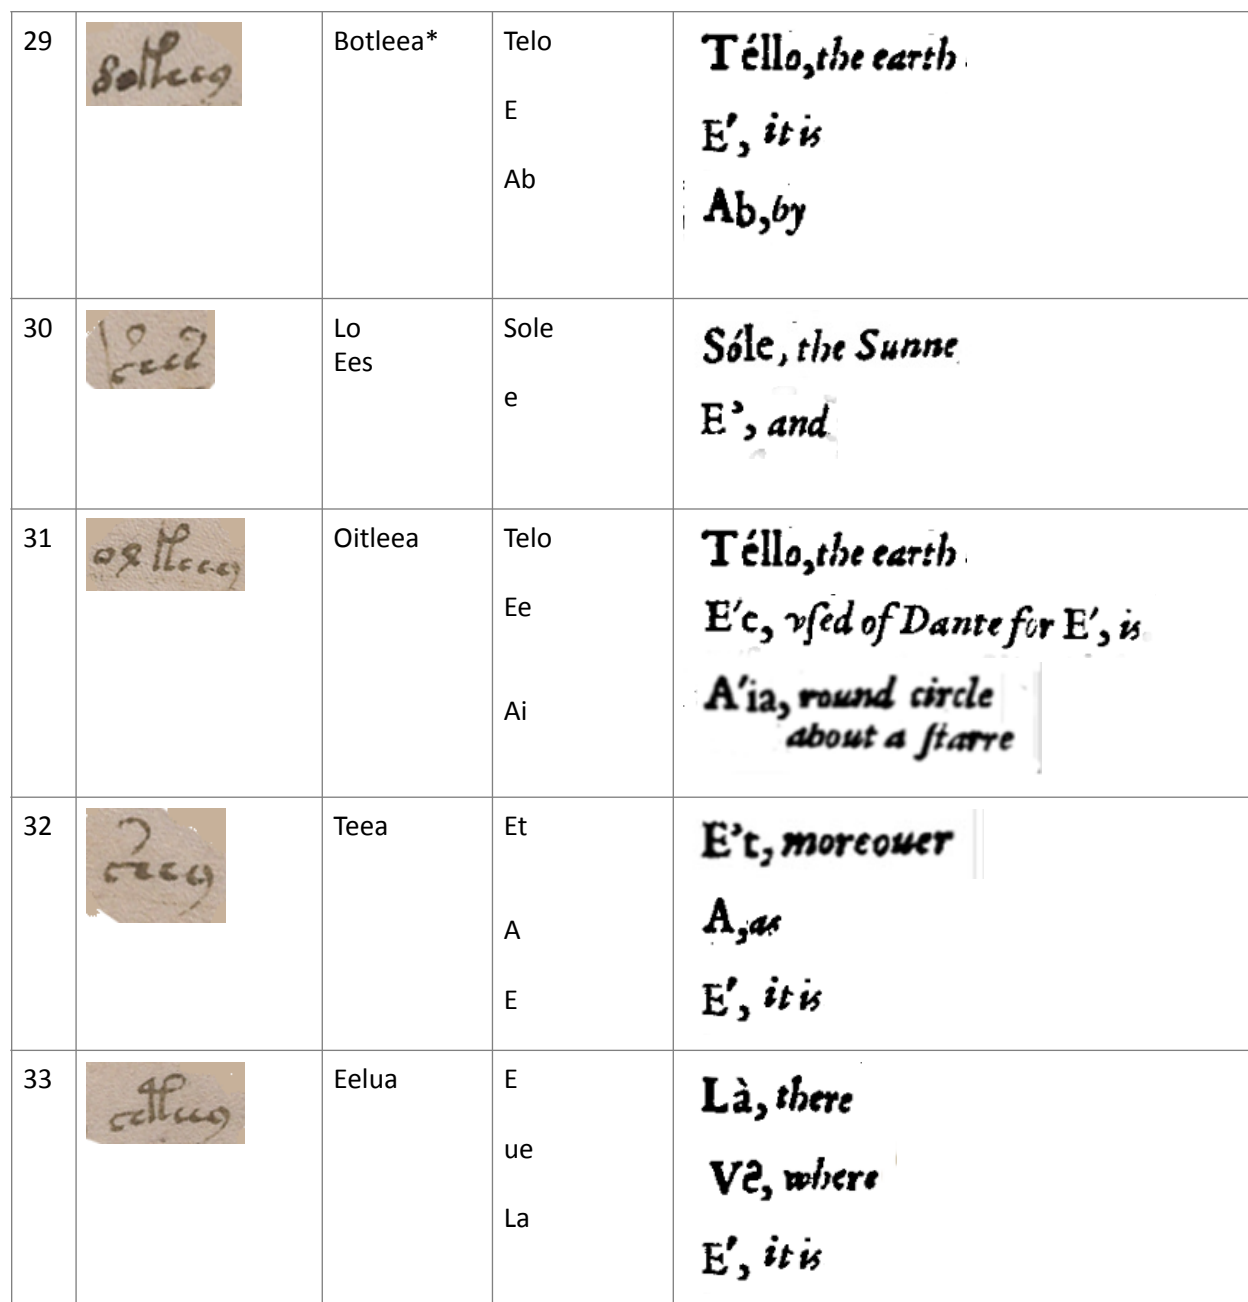 29
Botleea*
Telo
E
Ab
Téllo, the earth.
E', it is
Ab, by
30
Lo
Ees
Sole
e
Sóle, the Sunne
E', and
31
Oitleea
Telo
Ee
Ai
Téllo, the earth.
E'e, vſed of Dante for E', is
A'ia, round circle
about a ſtarre
32
Teea
Et
A
E
E't, moreouer
A, as
E', it is
33
Eelua
E
ue
La
Là, there
Vè, where
E', it is